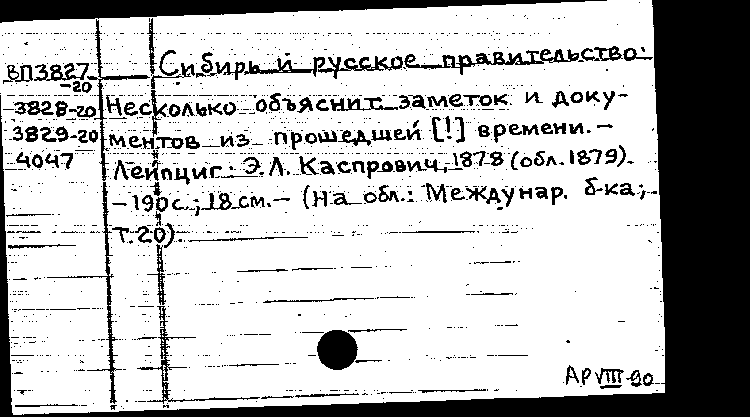 ВП3827-20 Сибирь и русское правительство:
3828-20 Несколько объяснит. заметок и доку-
3829-20 ментов из прошедшей [!] времени. –
4047 Лейпциг: Э.Л. Каспрович, 1878 (обл. 1879).
– 190 с.; 18 см. – (На обл.: Междунар. б-ка;
т. 20).
АР VIII-90